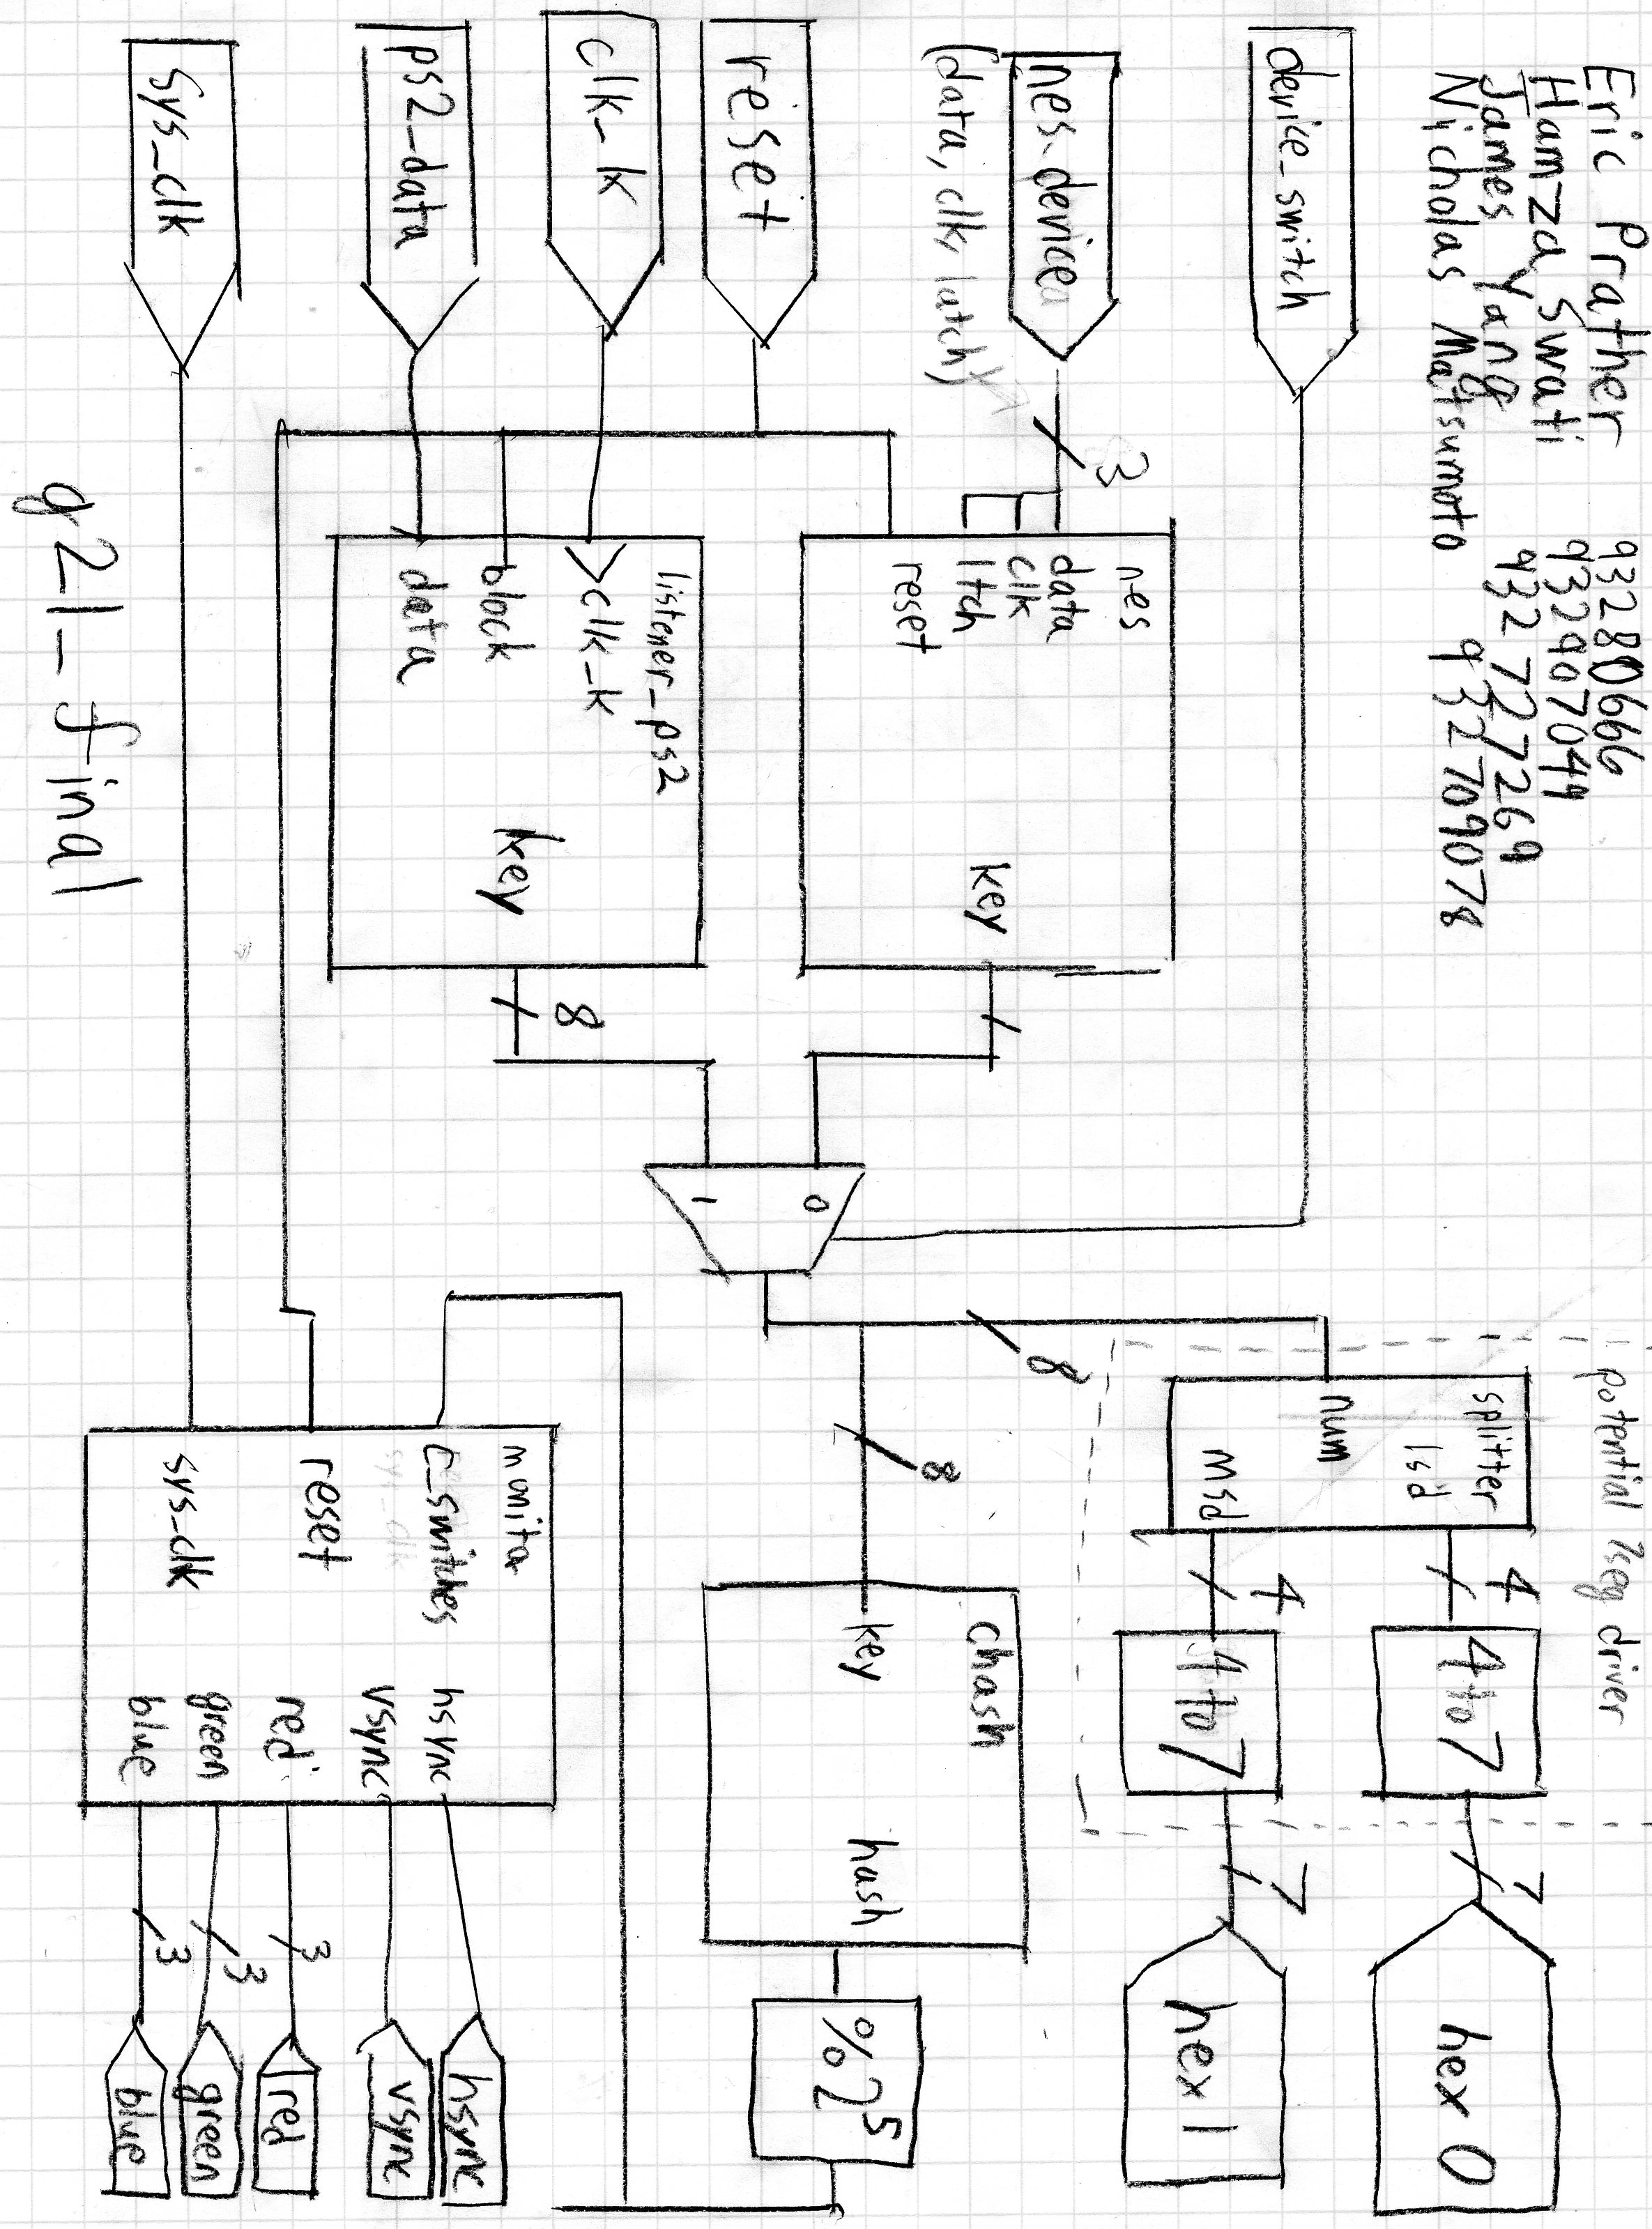 Eric Prather 93280666
Hamza Swati 932907049
James Yang 932727269
Nicholas Matsumoto 932709078
potential 7seg driver
splitter
lsd
num
msd
4
4to7
7
hex 0
4
4to7
7
hex 1
device_switch
nes_device
(data, clk, latch)
3
nes
data
clk
ltch
reset
key
reset
clk_k
ps2_data
listener_ps2
clk_k
block
data
key
8
0
1
8
8
chash
key
hash
%2⁵
monitor
c_switches
sys_clk
reset
sys_clk
hsync
vsync
red
green
blue
3
3
3
hsync
vsync
red
green
blue
sys_clk
g21_final